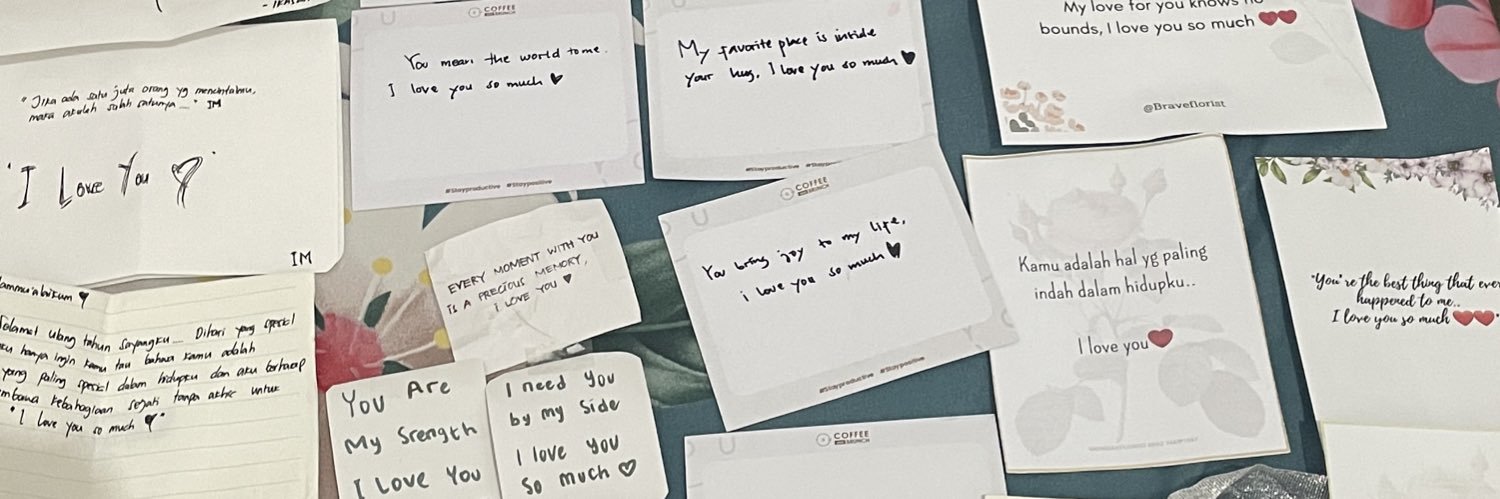 "Jika ada satu juta orang yg mencintaimu,
maka akulah salah satunya..." IM
"I Love You"
IM
COFFEE
BRUNCH
You mean the world to me.
I love you so much ♥
#Stayproductive #Staypositive
My favorite place is inside
your hug, I love you so much ♥
#Stayproductive
My love for you knows
bounds, I love you so much ❤❤
@Braveflorist
EVERY MOMENT WITH YOU
IS A PRECIOUS MEMORY,
I LOVE YOU ♥
COFFEE
BRUNCH
You bring joy to my life,
i love you so much ♥
#Stayproductive #Staypositive
Kamu adalah hal yg paling
indah dalam hidupku..
I love you❤
"You're the best thing that ever
happened to me..
I love you so much ❤❤"
Selamat ulang tahun sayangku... Dihari yang spesial
hanya ingin kamu tau bahwa kamu adalah
yang paling spesial dalam hidupku dan aku berharap
kebahagiaan sejati tanpa akhir untuk
"I love you so much ♥"
You Are
My Srength
I Love You
I need you
by my side
I love you
So much ♡
COFFEE
BRUNCH